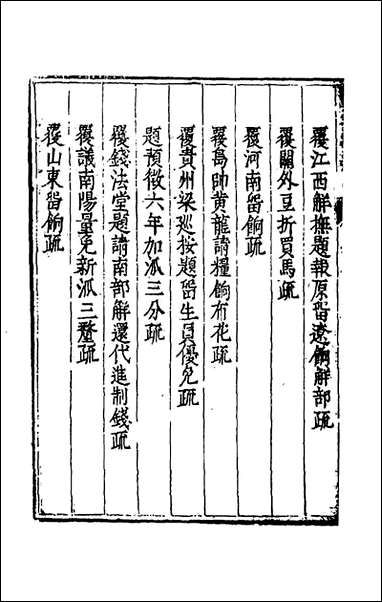 覆江西解撫題報原留遼餉解部疏
覆關外豆折買馬疏
覆河南留餉疏
覆島帥黃龍請糧餉布花疏
覆貴州梁巡按題留生員優免疏
題預徵六年加派三分疏
覆錢法堂題請南部解還代進制錢疏
覆議南陽量免新派三釐疏
覆山東留餉疏